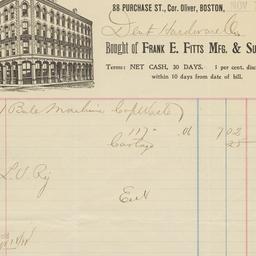 88 PURCHASE ST., Cor. Oliver, BOSTON, NOV
Dent Hardware Co
Bought of FRANK E. FITTS MFG. & SU
Terms: NET CASH, 30 DAYS. 1 per cent. disc
within 10 days from date of bill.
1 Bale Machine Cop Waste
117 - .06 702
Cartage 25
L. V. Rij
Exit